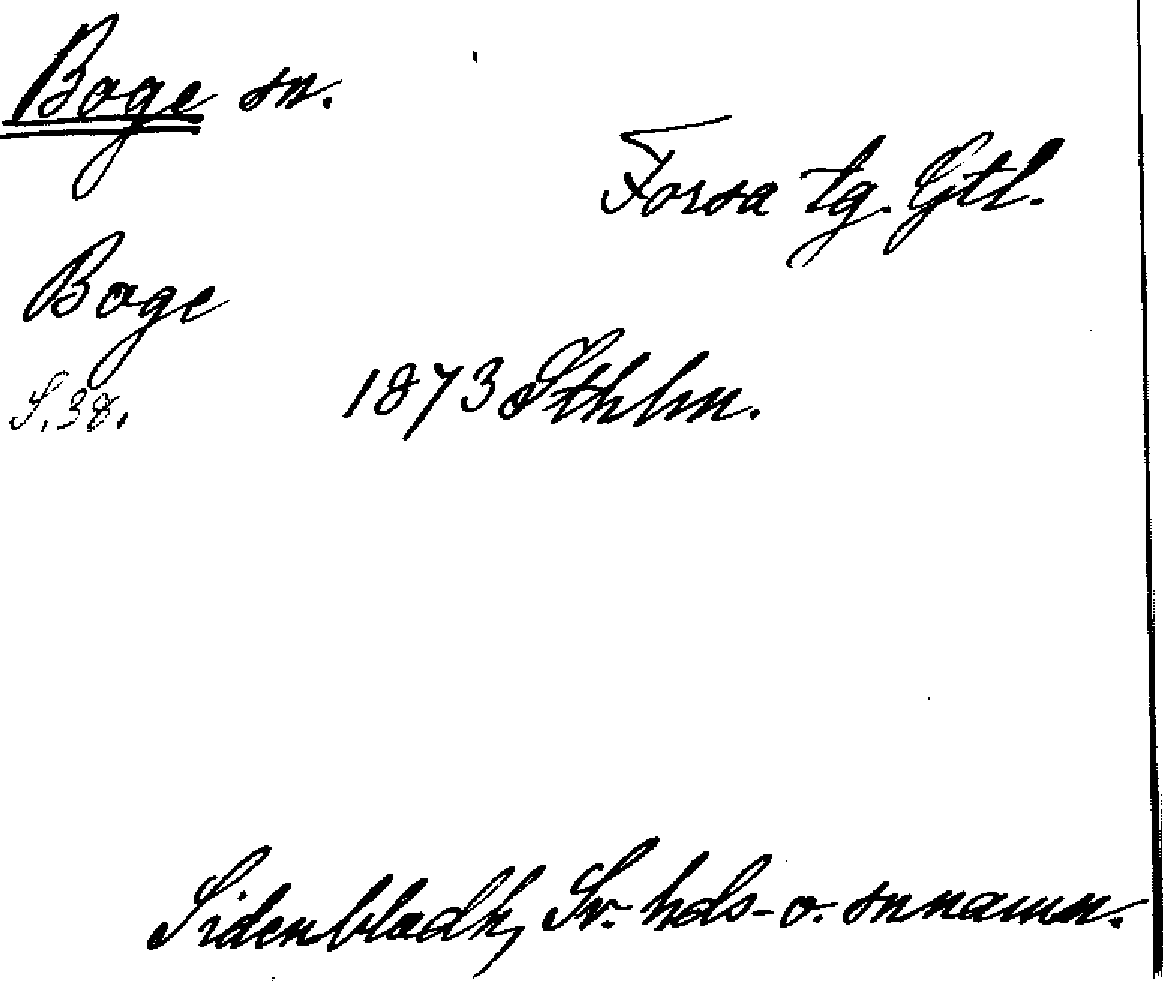 Boge sn.
Forsa tg. Gtl.
Boge
S. 38.
1873 Sthlm.
Sidenbladh, Sv. hds- o. snnamn.